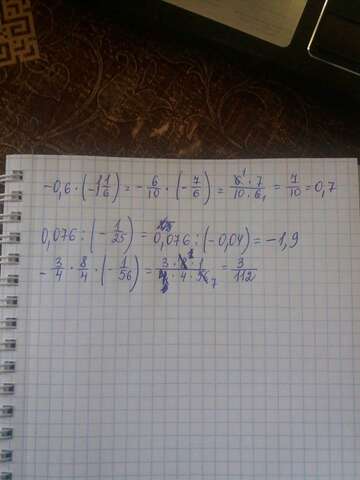 -0,6 · (-1 1/6) = - 6/10 · (- 7/6) = 6 · 7 / 10 · 6 = 7/10 = 0,7
0,076 : (- 1/25) = 0,076 : (-0,04) = -1,9
- 3/4 · 8/4 · (- 1/56) = 3 · 8 · 1 / 4 · 4 · 56 = 3/112